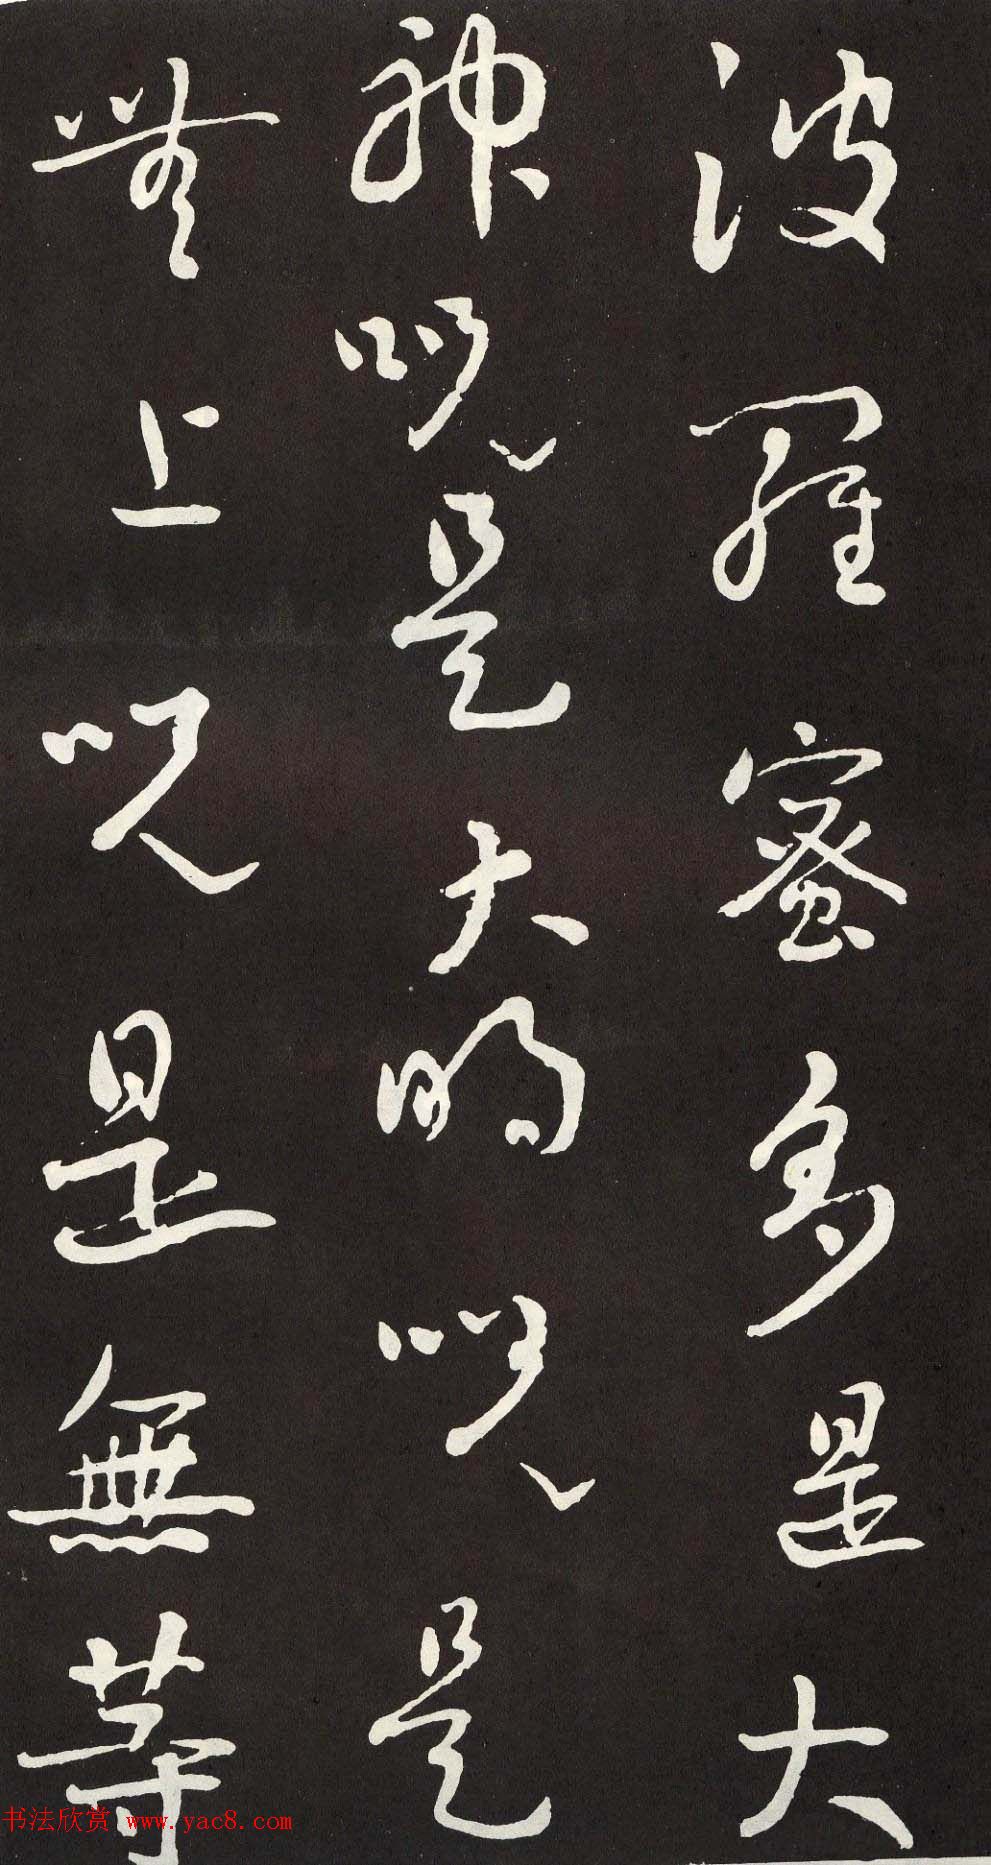 波羅蜜多是大
神呪是大明呪是
無上呪是無等
书法欣赏 www.yac8.com